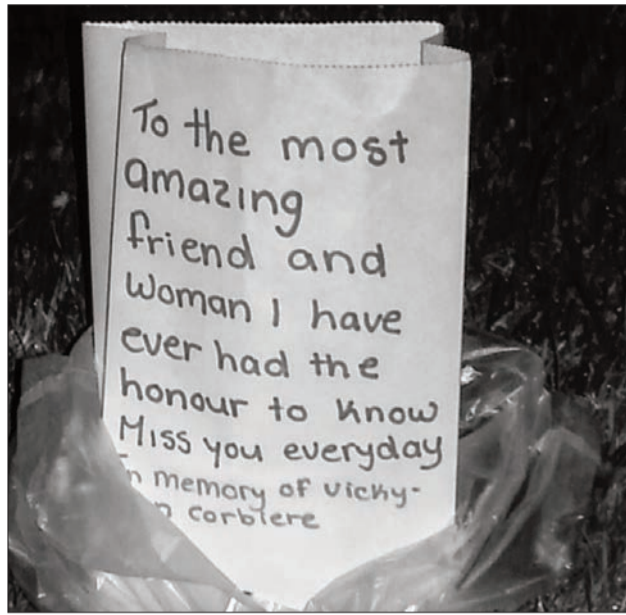 To the most
amazing
friend and
woman I have
ever had the
honour to know
Miss you everyday
In memory of Vicky-
Corbiere